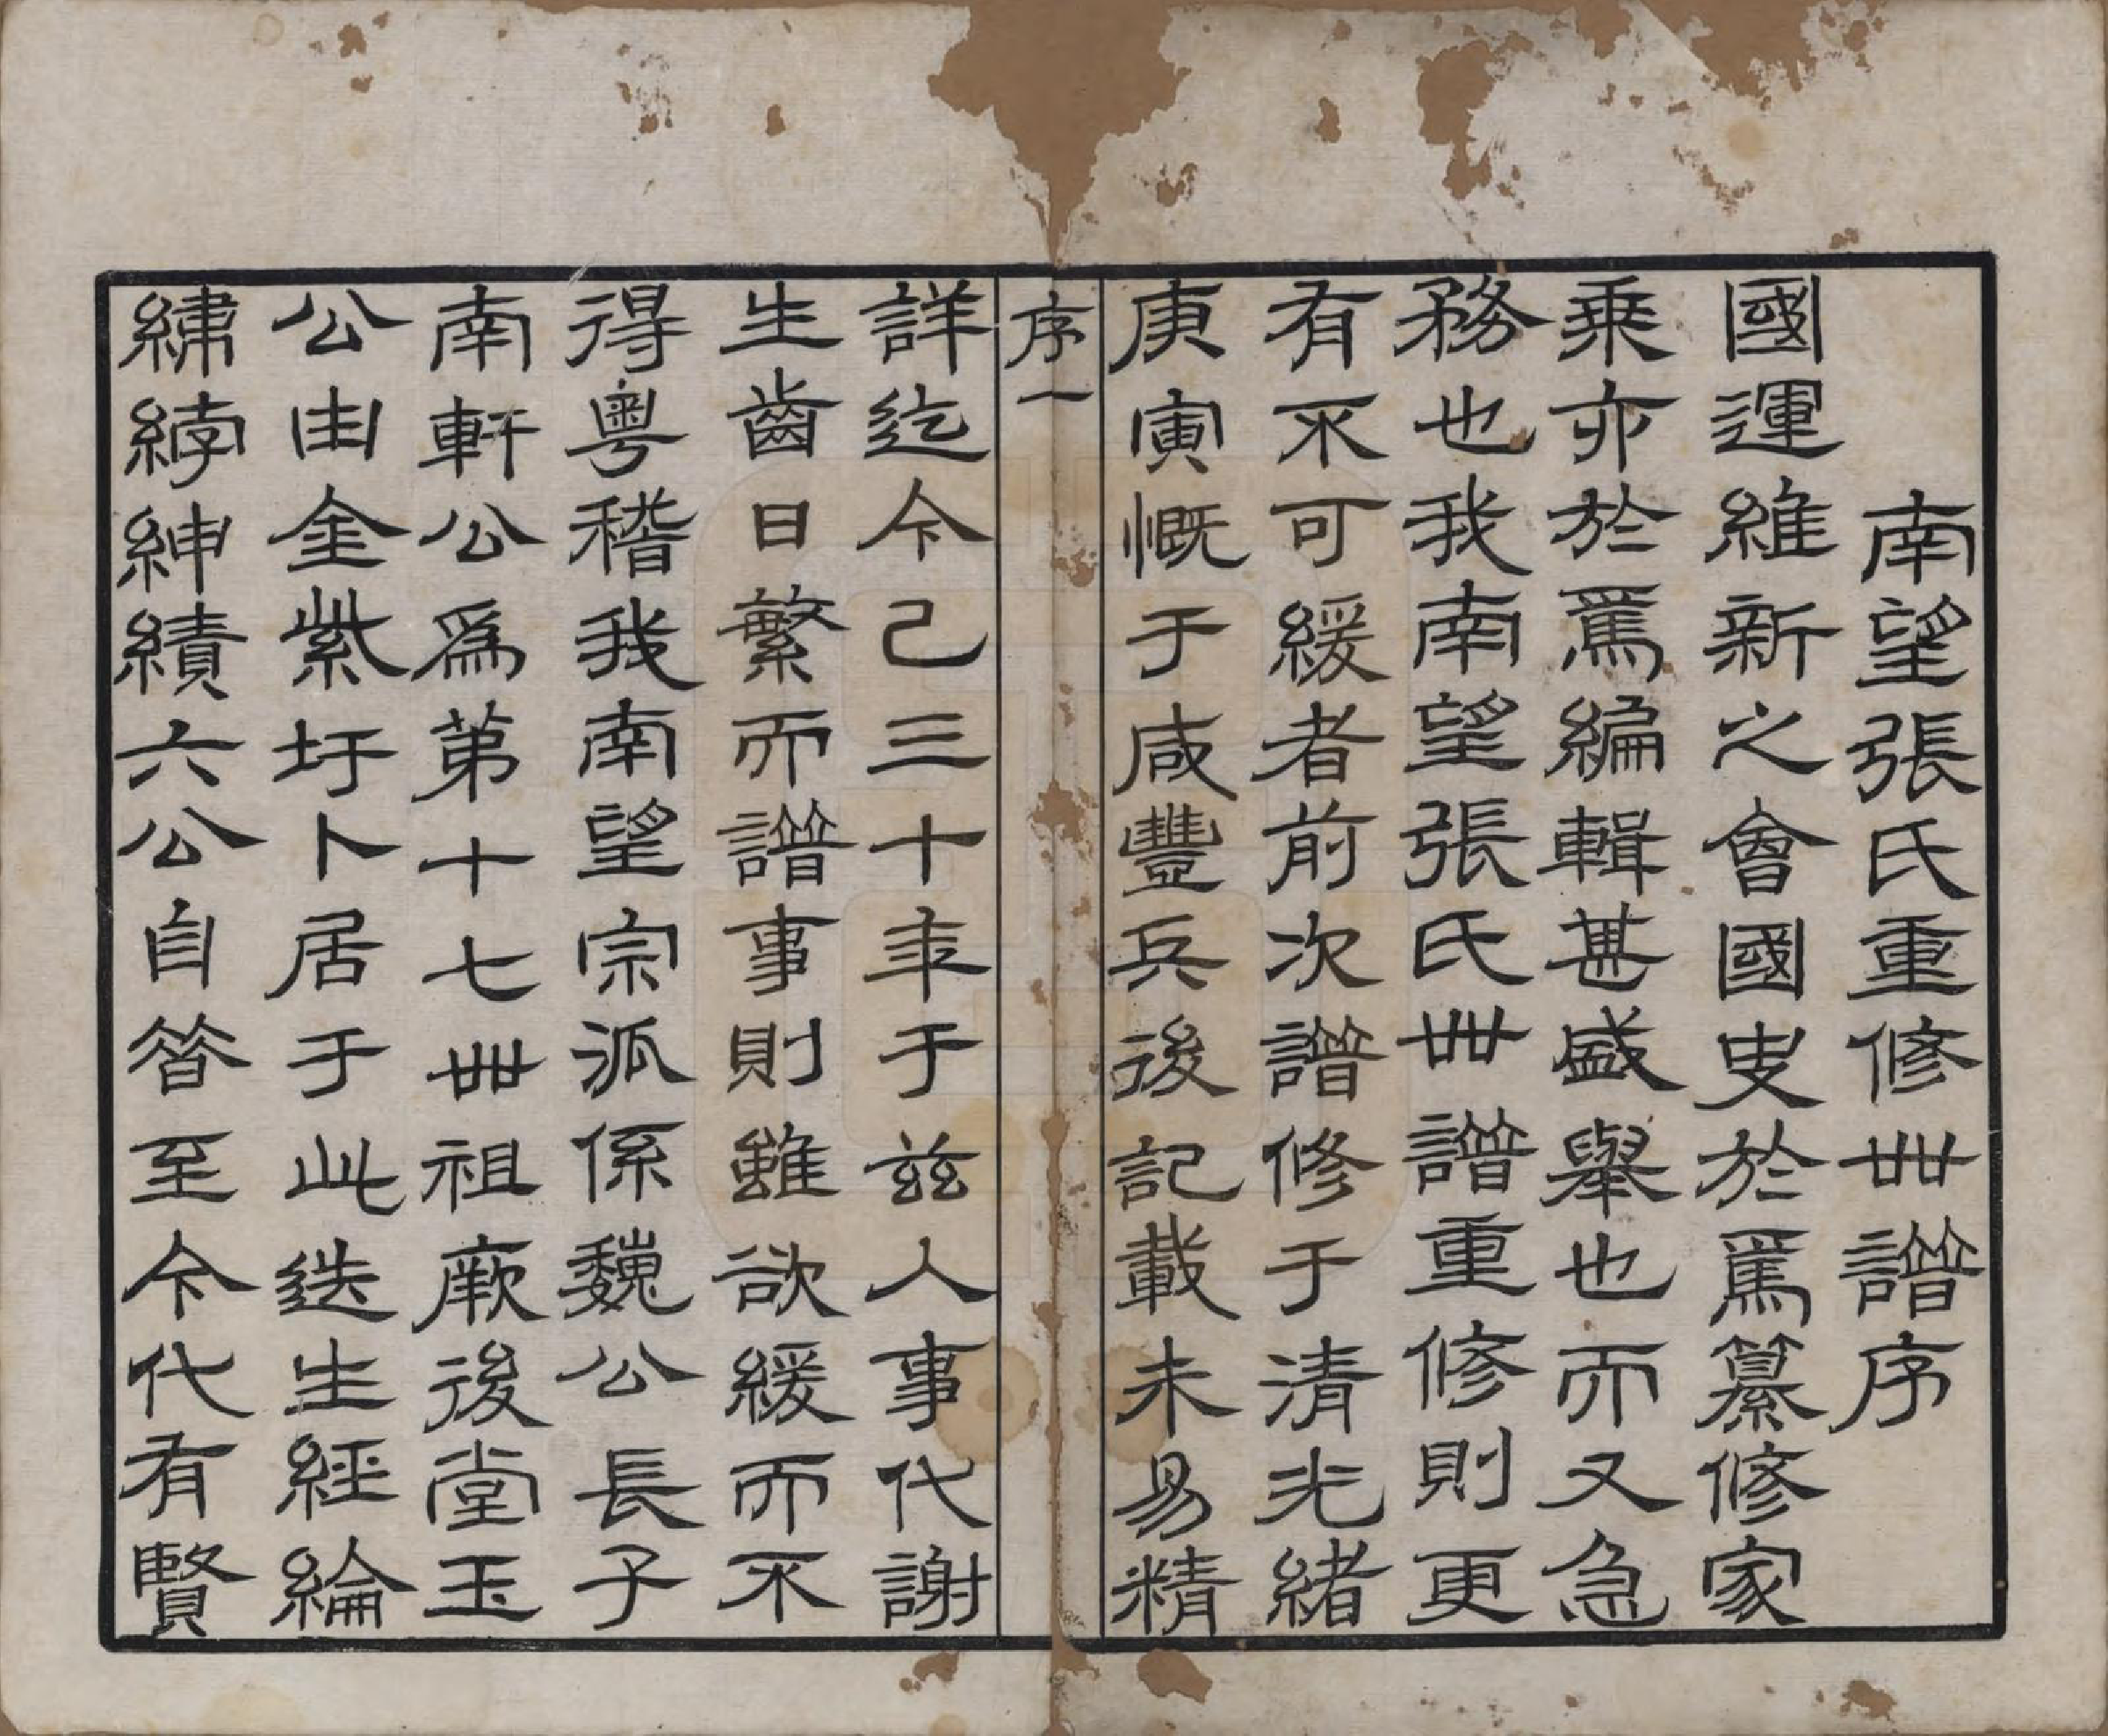 南望張氏重修世譜序
國運維新之會國史於焉纂修家
乗亦於焉編輯甚盛舉也而又急
務也我南望張氏世譜重修則更
有不可緩者前次譜修于清光緒
庚寅慨于咸豐兵後記載未易精
序一
詳迄今己三十年于兹人事代謝
生齒日繁而譜事則雖欲緩而不
得粵稽我南望宗派係魏公長子
南軒公爲第十七世祖厥後堂玉
公由金紫圩卜居于此迭生經綸
繡綍紳績六公自昝至今代有賢